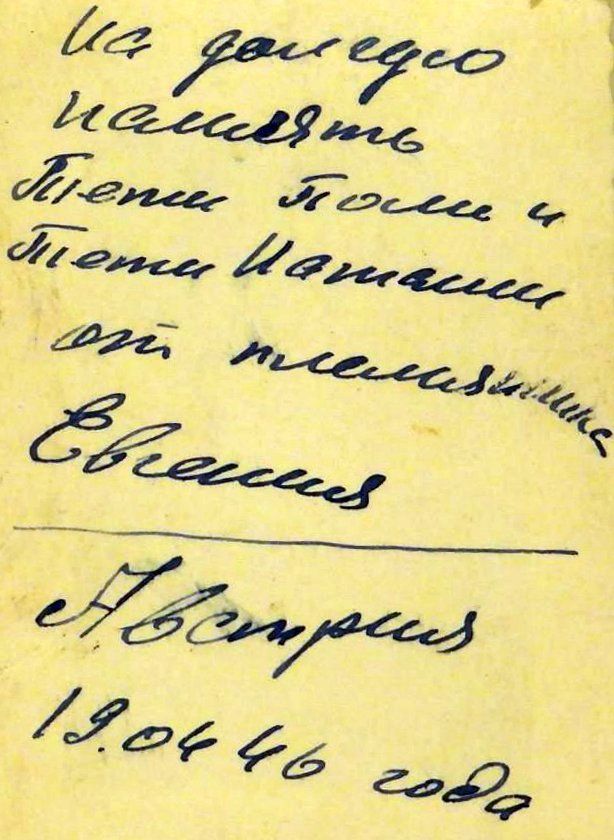 На долгую
память
Тети Поли и
Тети Наташи
от племянника
Евгения
Австрия
19.04 46 года